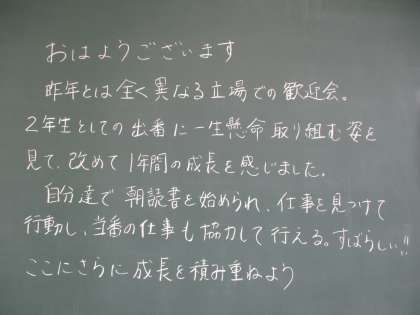 おはようございます
昨年とは全く異なる立場での歓迎会。
2年生としての出番に一生懸命取り組む姿を
見て、改めて1年間の成長を感じました。
自分達で朝読書を始められ、仕事を見つけて
行動し、当番の仕事も協力して行える。すばらしい!!
ここにさらに成長を積み重ねよう